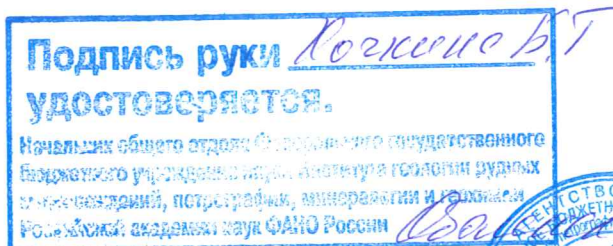 Подпись руки Кочкина Б.Т
удостоверяется.
Начальник общего отдела Федерального государственного
бюджетного учреждения науки Института геологии рудных
месторождений, петрографии, минералогии и геохимии
Российской академии наук ФАНО России